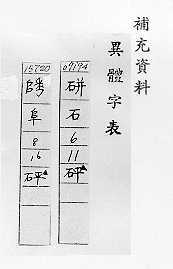 補充資料
異體字表
07194
硑
石
6
11
砰▲
15720
阜
8
16
砰▲